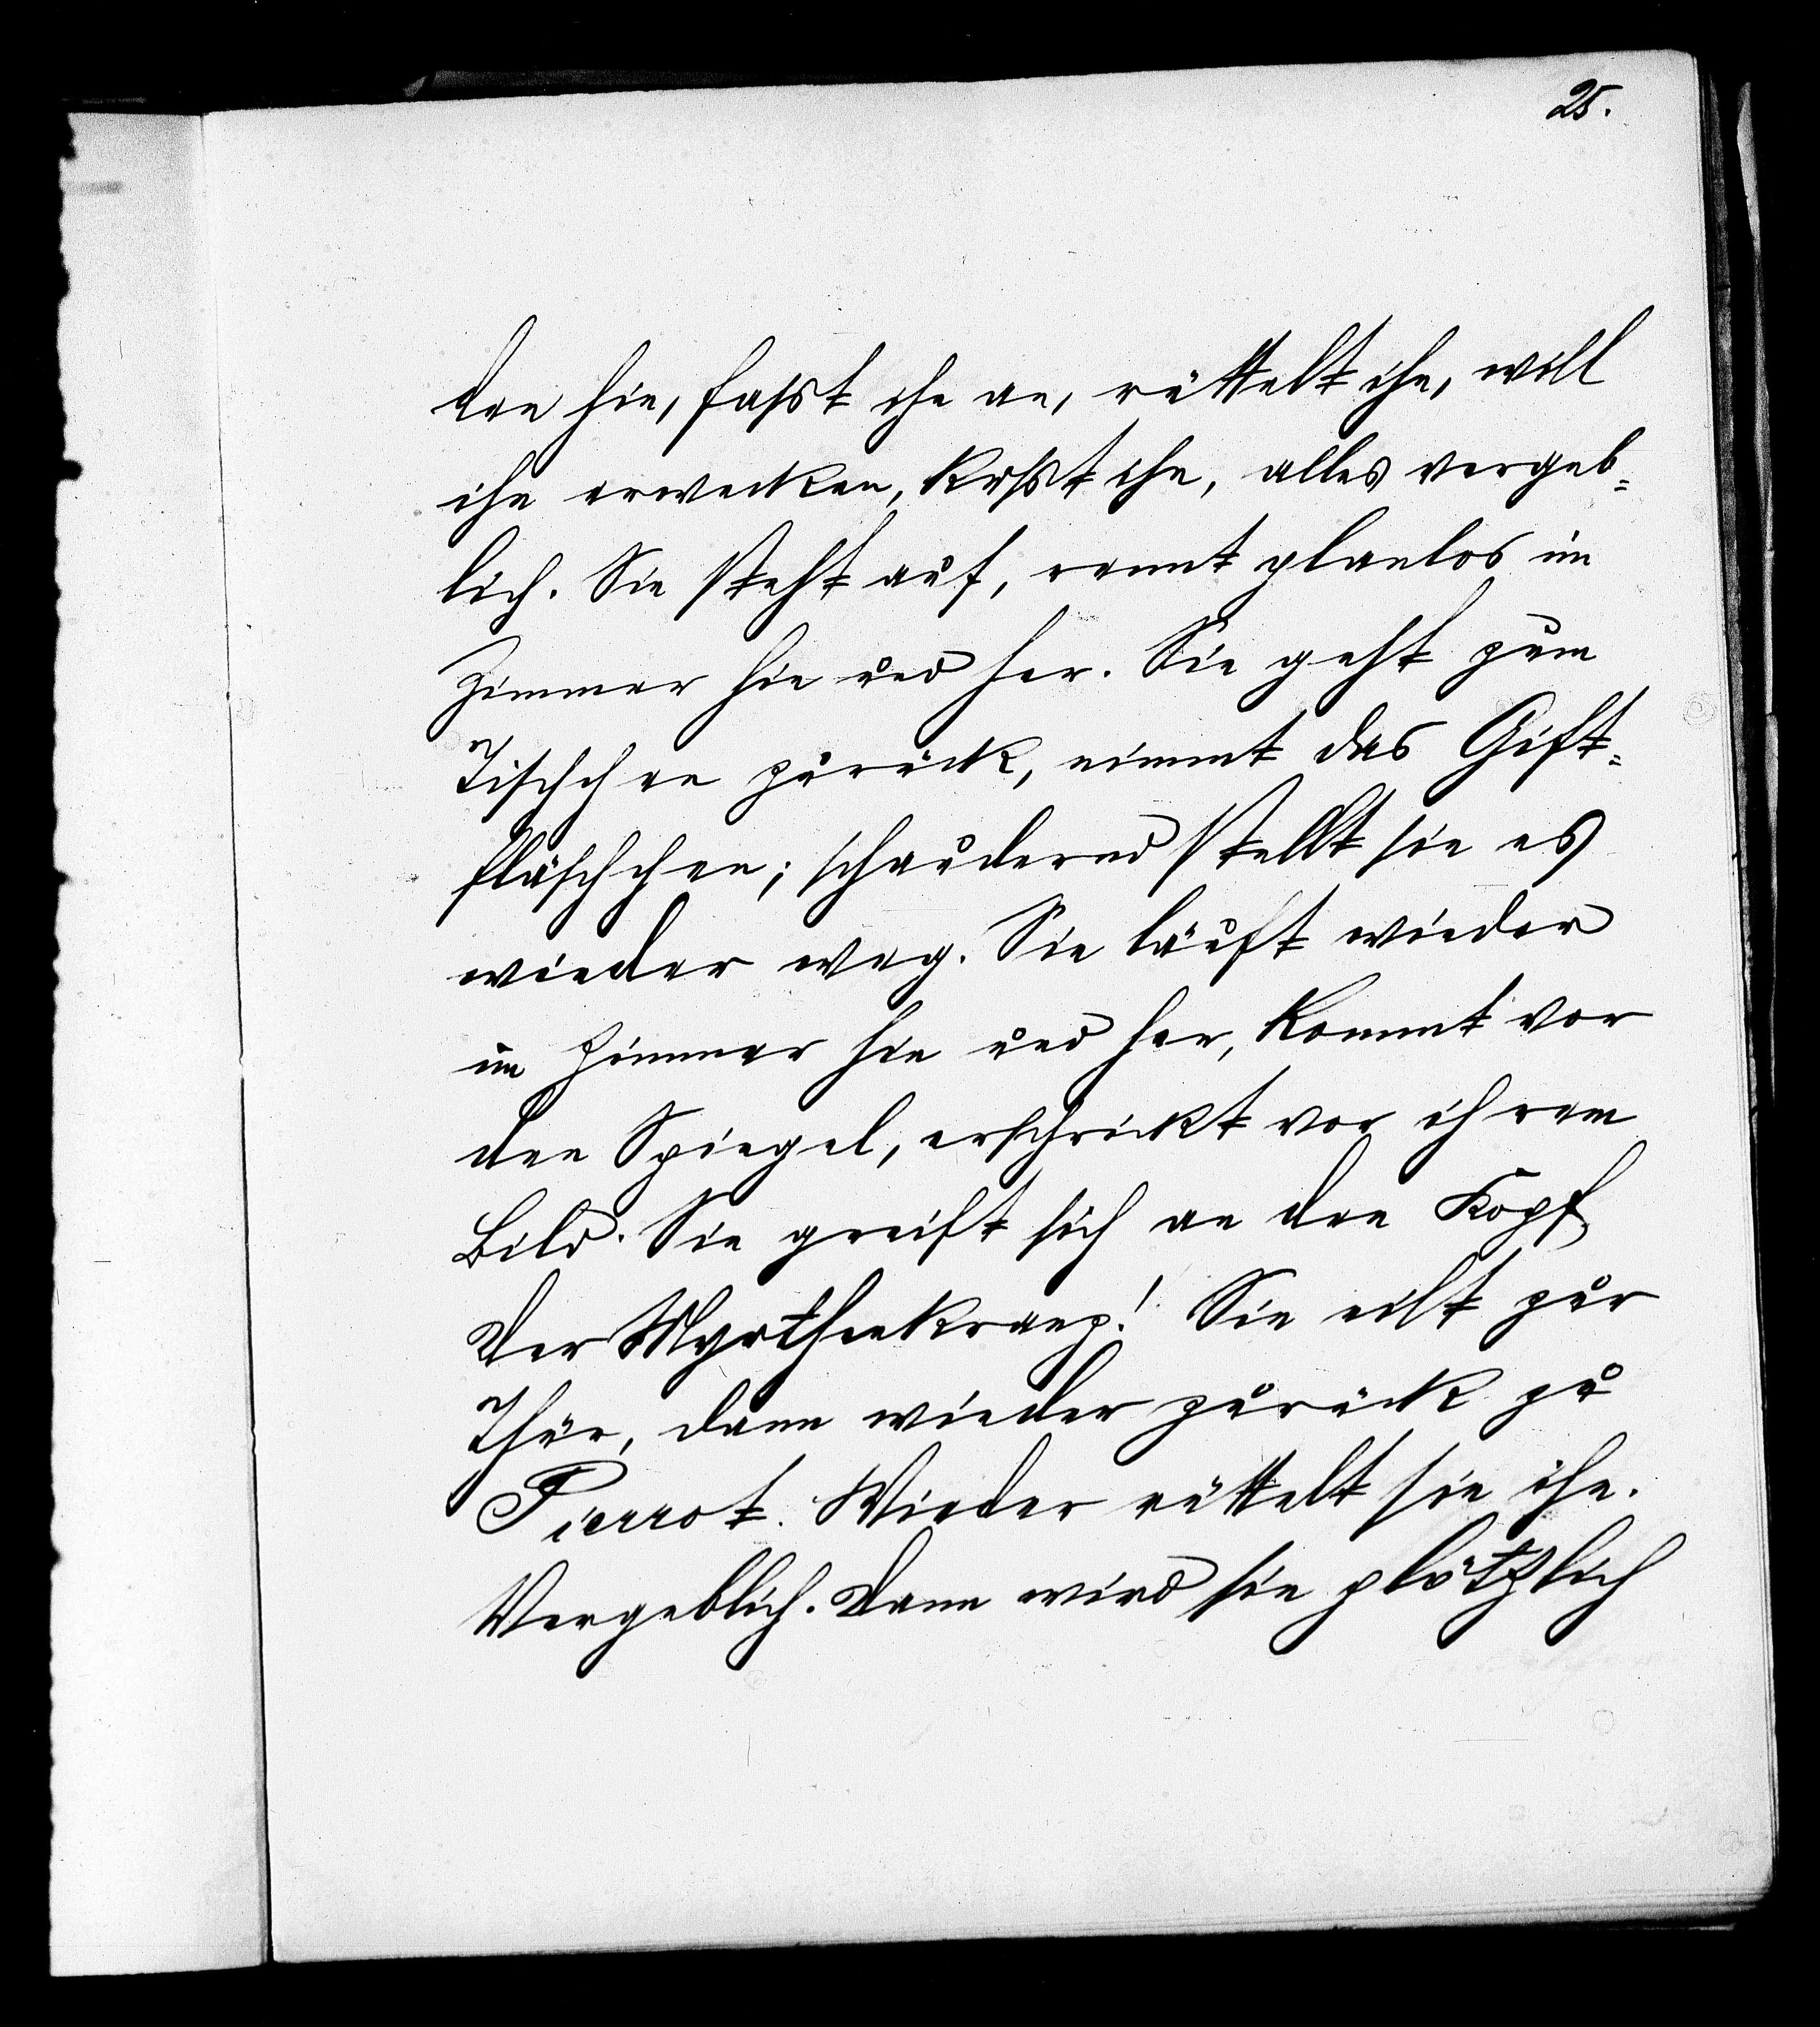 25.
den hin, faßt ihn an, rüttelt ihn, will
ihn erwecken, küßt ihn, alles vergeb=
lich. Sie steht auf, rennt planlos im
Zimmer hin und her. Sie geht zum
Tischchen zurück, nimmt das Gift=
fläschchen; schaudernd stellt sie es
wieder weg. Sie läuft wieder
im Zimmer hin und her, kommt vor
den Spiegel, erschrickt vor ihrem
Bild. Sie greift sich an den Kopf,
Der Myrthenkranz! Sie eilt zur
Thür, dann wieder zurück zu
Pierrot. Wieder rüttelt sie ihn.
Vergeblich. Dann wird sie plötzlich